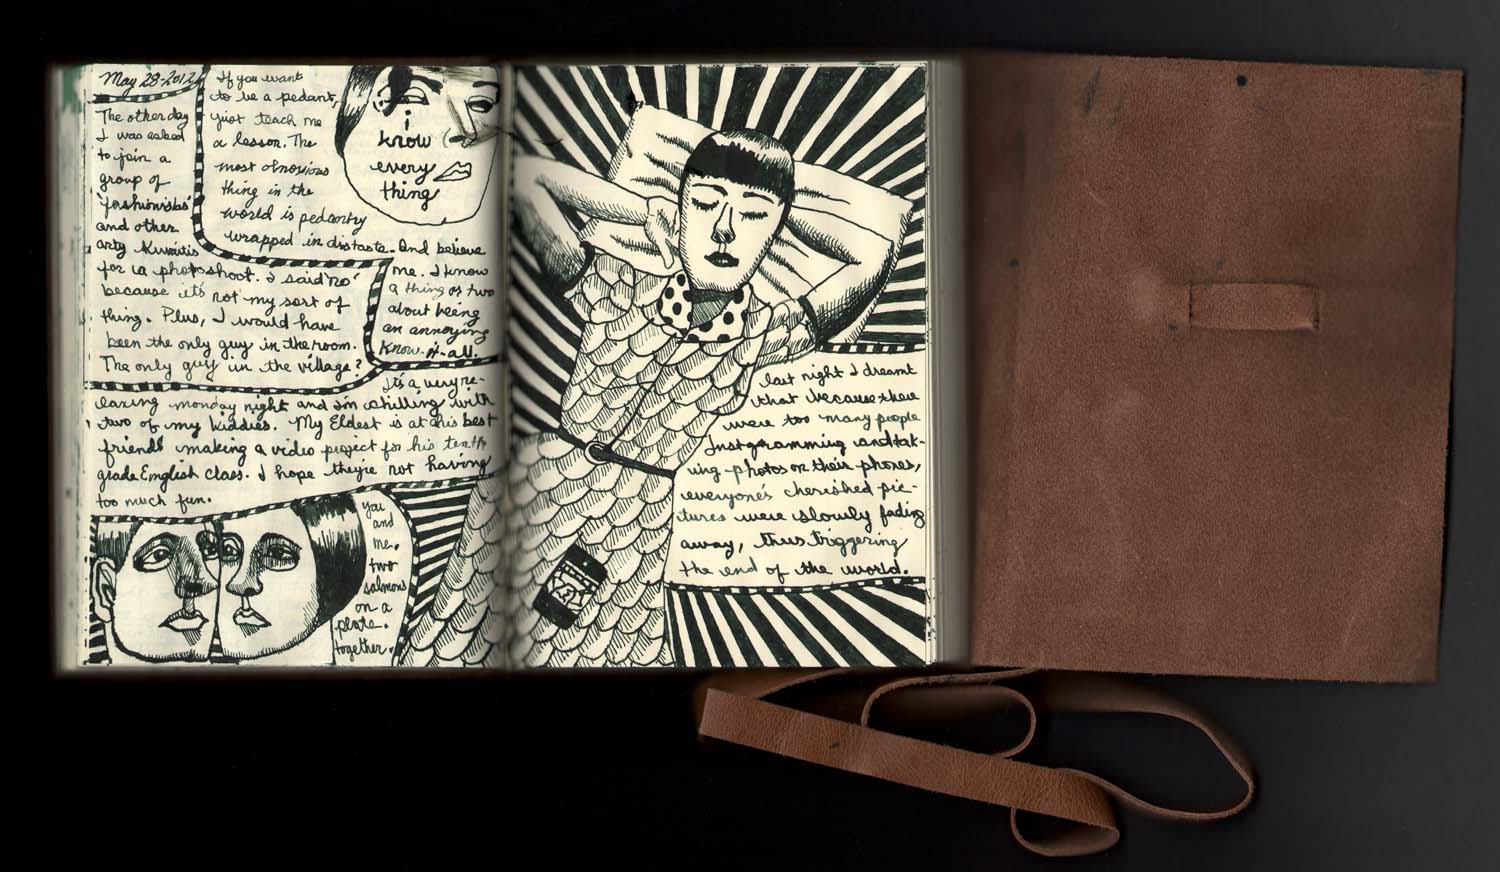 May 28-2012
The other day
I was asked
to join a
group of
'fashionistas'
and other
arty Kuwaitis
for a photoshoot. I said 'no'
because it's not my sort of
thing. Plus, I would have
been the only guy in the room.
The only guy in the village?
If you want
to be a pedant,
just teach me
a lesson. The
most obnoxious
thing in the
world is pedantry
wrapped in distaste. And believe
me. I know
a thing or two
about being
an annoying
know-it-all.
i
know
every
thing
It's a very re-
laxing monday night and I'm chilling with
two of my kiddies. My Eldest is at his best
friend's making a video project for his tenth
grade English class. I hope they're not having
too much fun.
you
and
me.
two
salmons
on a
plate.
together.
last night I dreamt
that because there
were too many people
Instagramming and tak-
ing photos on their phones,
everyone's cherished pic-
tures were slowly fading
away, thus triggering
the end of the world.